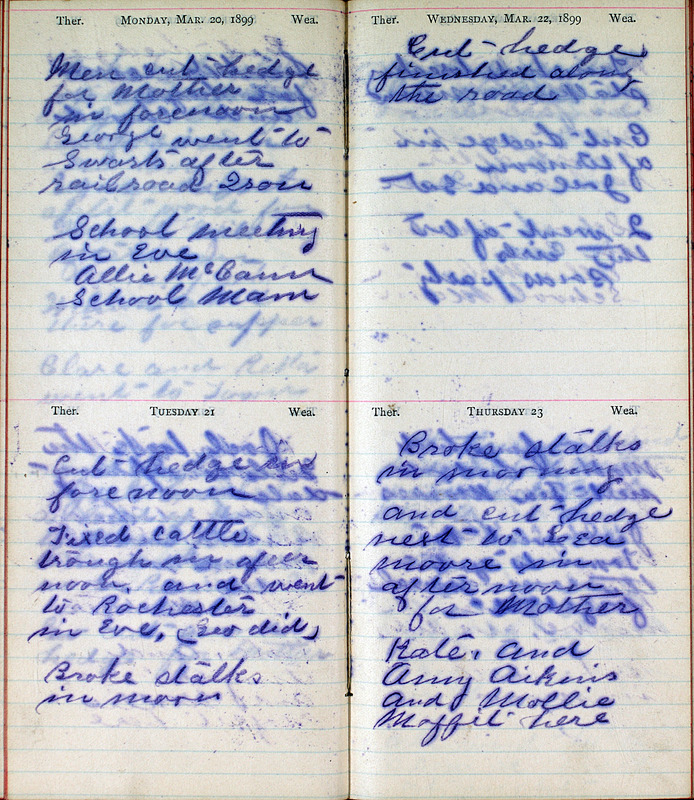 Ther. Monday, Mar. 20, 1899 Wea.
Men cut hedge
for Mother
in forenoon
George went to
Swarts after
railroad Iron
School meeting
in Eve
Allie McCann
School Mam
Tuesday 21
Ther. Wea.
Cut hedge in
forenoon
Fixed cattle
trough in after
noon. and went
to Rochester
in Eve, (Geo did)
Broke stalks
in morn
Ther. Wednesday, Mar. 22, 1899 Wea.
Cut hedge
finished along
the road
Ther. Thursday 23 Wea.
Broke stalks
in morning
and cut hedge
next to Geo
moore in
afternoon
for Mother
Kate, and
Amy Aikins
and Mollie
Moffit here